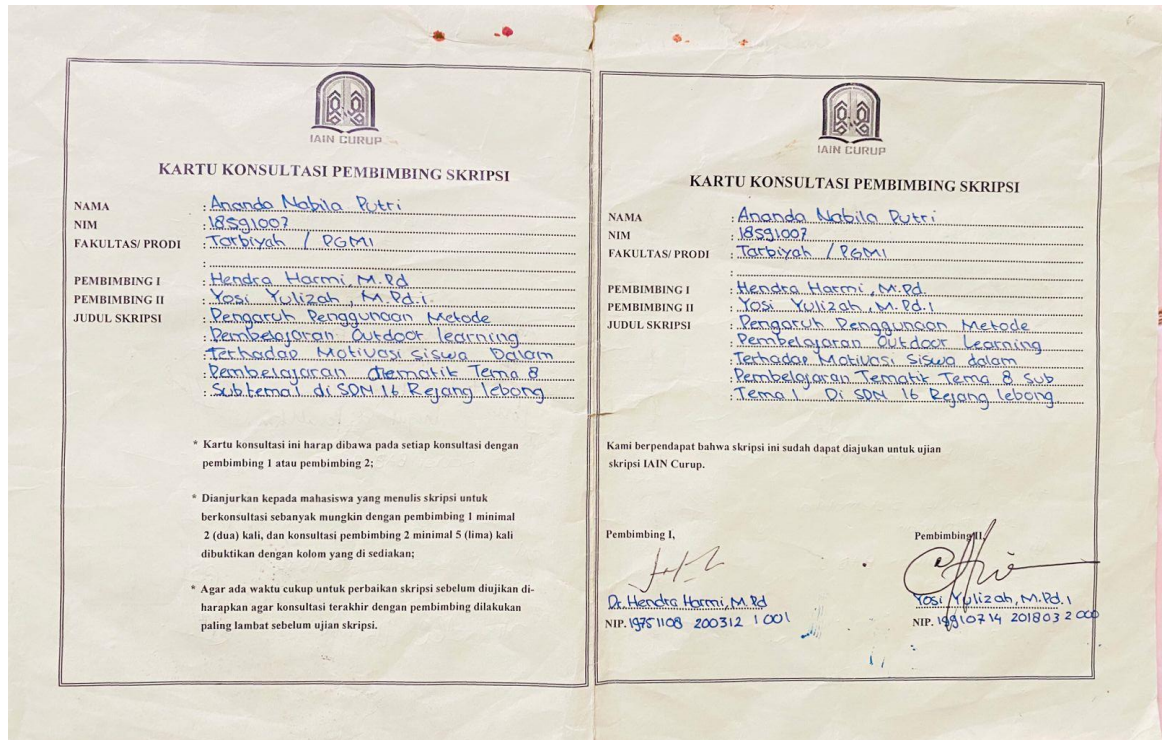 IAIN CURUP
KARTU KONSULTASI PEMBIMBING SKRIPSI
NAMA : Ananda Nabila Putri
NIM : 18591007
FAKULTAS/ PRODI : Tarbiyah / PGMI
:
PEMBIMBING I : Hendra Harmi, M.Pd
PEMBIMBING II : Yosi Yulizah, M.Pd.i
JUDUL SKRIPSI : Pengaruh Penggunaan Metode
: Pembelajaran Outdoor learning
: Terhadap Motivasi siswa Dalam
: Pembelajaran tematik Tema 8
: Subtema 1 di SDN 16 Rejang lebong
* Kartu konsultasi ini harap dibawa pada setiap konsultasi dengan
pembimbing 1 atau pembimbing 2;
* Dianjurkan kepada mahasiswa yang menulis skripsi untuk
berkonsultasi sebanyak mungkin dengan pembimbing 1 minimal
2 (dua) kali, dan konsultasi pembimbing 2 minimal 5 (lima) kali
dibuktikan dengan kolom yang di sediakan;
* Agar ada waktu cukup untuk perbaikan skripsi sebelum diujikan di-
harapkan agar konsultasi terakhir dengan pembimbing dilakukan
paling lambat sebelum ujian skripsi.
IAIN CURUP
KARTU KONSULTASI PEMBIMBING SKRIPSI
NAMA : Ananda Nabila Putri
NIM : 18591007
FAKULTAS/ PRODI : Tarbiyah / PGMI
:
PEMBIMBING I : Hendra Harmi, M.Pd.
PEMBIMBING II : Yosi Yulizah, M.Pd.I
JUDUL SKRIPSI : Pengaruh Penggunaan Metode
: Pembelajaran Outdoor Learning
: Terhadap Motivasi Siswa dalam
: Pembelajaran Tematik Tema 8 Sub
: Tema 1 Di SDN 16 Rejang lebong
Kami berpendapat bahwa skripsi ini sudah dapat diajukan untuk ujian
skripsi IAIN Curup.
Pembimbing I, Pembimbing II,
Dr. Hendra Harmi, M.Pd Yosi Yulizah, M.Pd.I
NIP. 19751108 200312 1 001 NIP. 19910714 201803 2 000